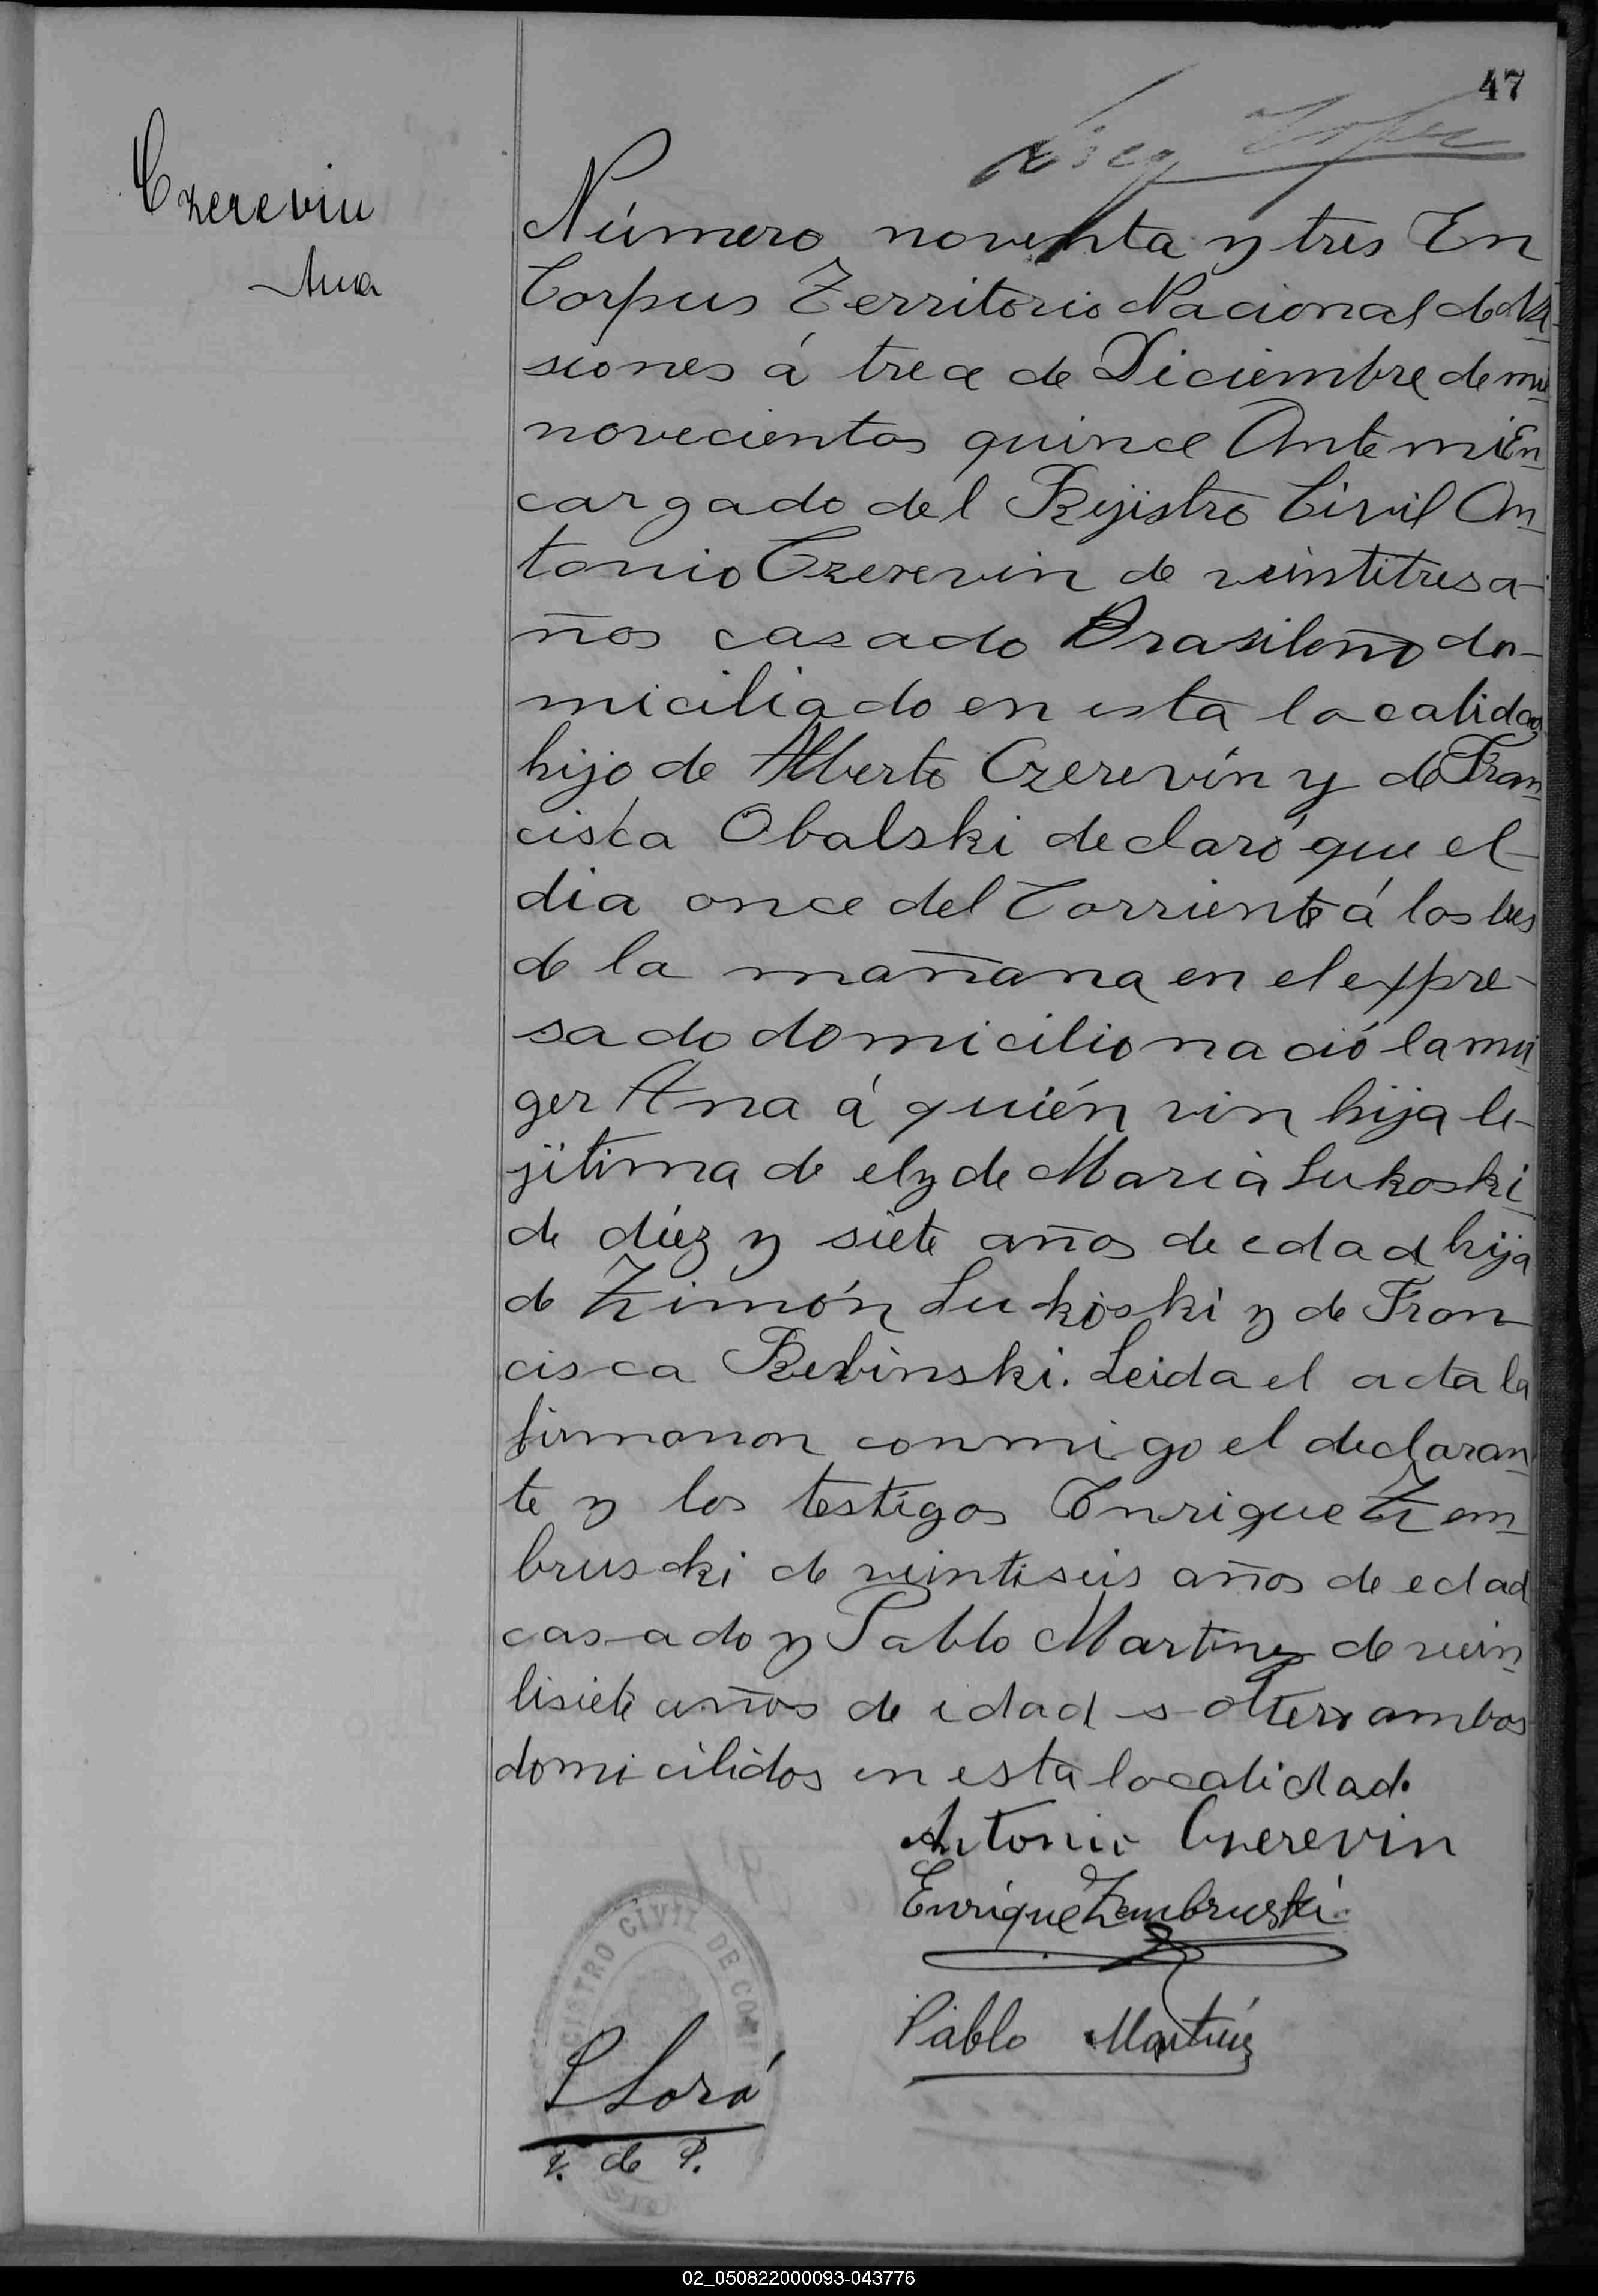 47
Czerevin
Ana
Número noventa y tres En
Corpus Territorio Nacional de Mi-
siones á trece de Diciembre de mil
novecientos quince Ante mi En-
cargado del Rejistro Civil An-
tonio Czerevin de veintitres a-
ños casado Brasileño do-
miciliado en esta localidad
hijo de Alberto Czerevín y de Fran-
cisca Obalski declaró que el
dia once del Corriente á las tres
de la mañana en el expre-
sado domicilio nació la mu-
ger Ana á quién vin hija le-
jitima de el y de Maria Lukoski
de diéz y siete años de edad hija
de Zimón Lukoski y de Fran-
cisca Rebinski. Leida el acta la
firmaron conmigo el declaran-
te y los testigos Enrique Zem-
bruski de veintiseis años de edad
casado y Pablo Martinez de vein-
tisiete años de edad soltero ambos
domicilidos en esta localidad.
Antonio Czerevin
Enrique Zembruski
Pablo Martínez
REGISTRO CIVIL DE CORPUS
J. de P.
02_050822000093-043776